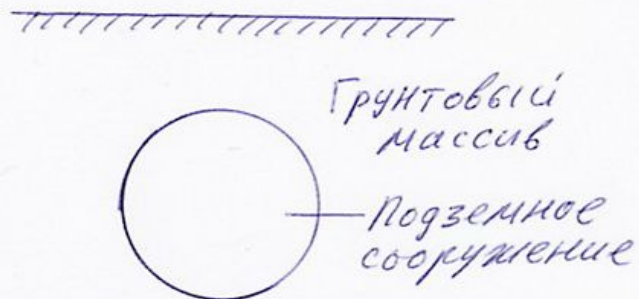 Грунтовый
массив
Подземное
сооружение